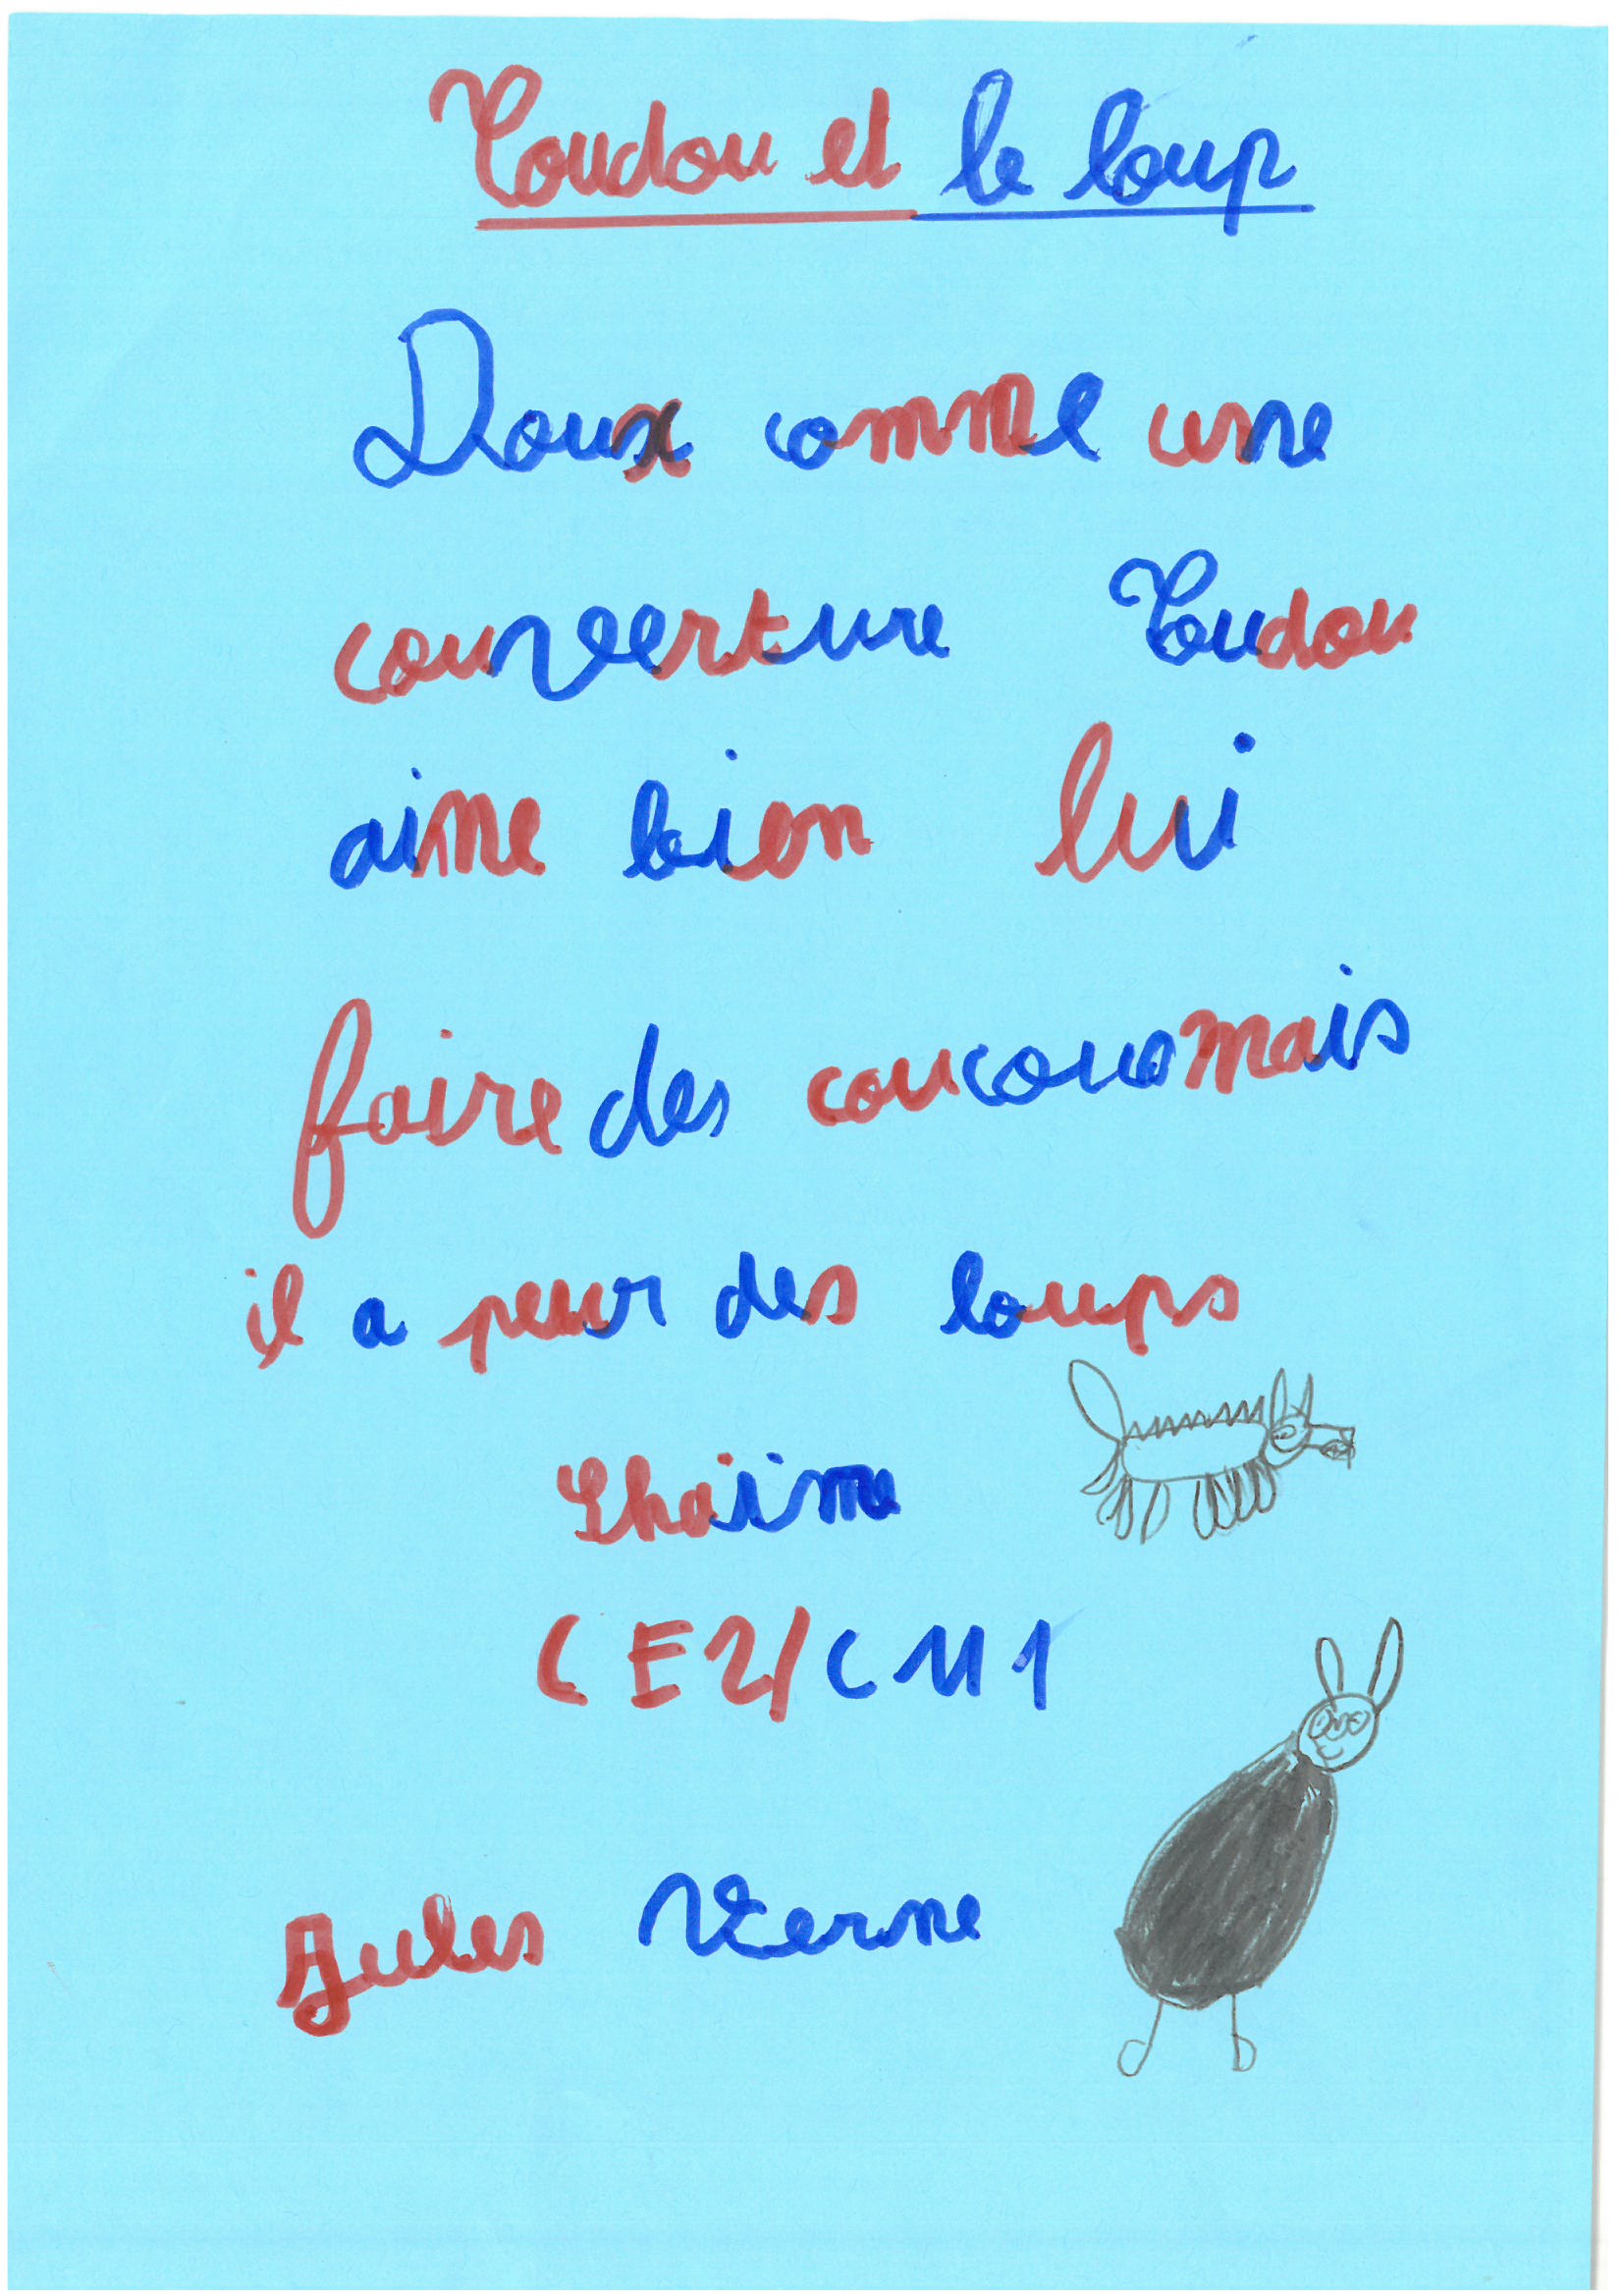 Toudou et le loup
Doux comme une
couverture Toudou
aime bien lui
faire des coucous mais
il a peur des loups
CE2/CM1
Jules Verne